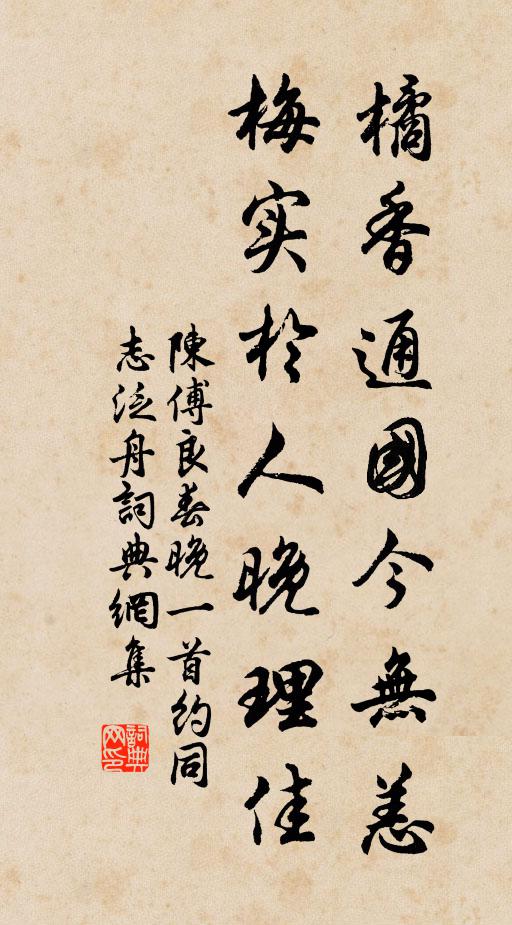 橘香通國今無恙
梅实於人晚理佳
陳傅良春晚一首約同
志泛舟詞典網集
詞典网印